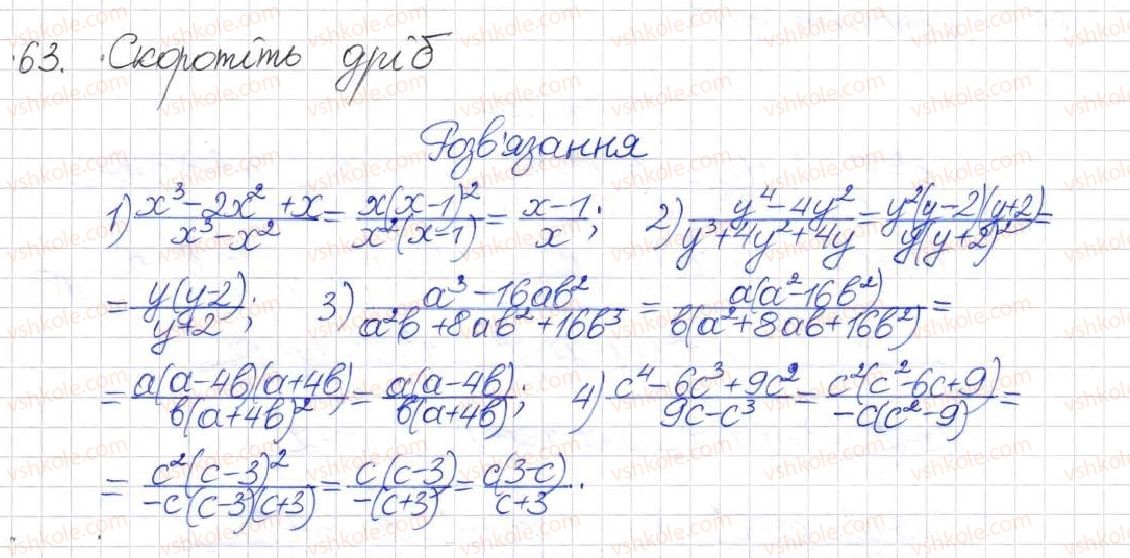 63. Скоротіть дріб
Розв'язання
1) (x³-2x²+x)/(x³-x²) = (x(x-1)²)/(x²(x-1)) = (x-1)/x; 2) (y⁴-4y²)/(y³+4y²+4y) = (y²(y-2)(y+2))/(y(y+2)²) =
= (y(y-2))/(y+2); 3) (a³-16ab²)/(a²b+8ab²+16b³) = (a(a²-16b²))/(b(a²+8ab+16b²)) =
= (a(a-4b)(a+4b))/(b(a+4b)²) = (a(a-4b))/(b(a+4b)); 4) (c⁴-6c³+9c²)/(9c-c³) = (c²(c²-6c+9))/(-c(c²-9)) =
= (c²(c-3)²)/(-c(c-3)(c+3)) = (c(c-3))/(-(c+3)) = (c(3-c))/(c+3)..
vshkole.com